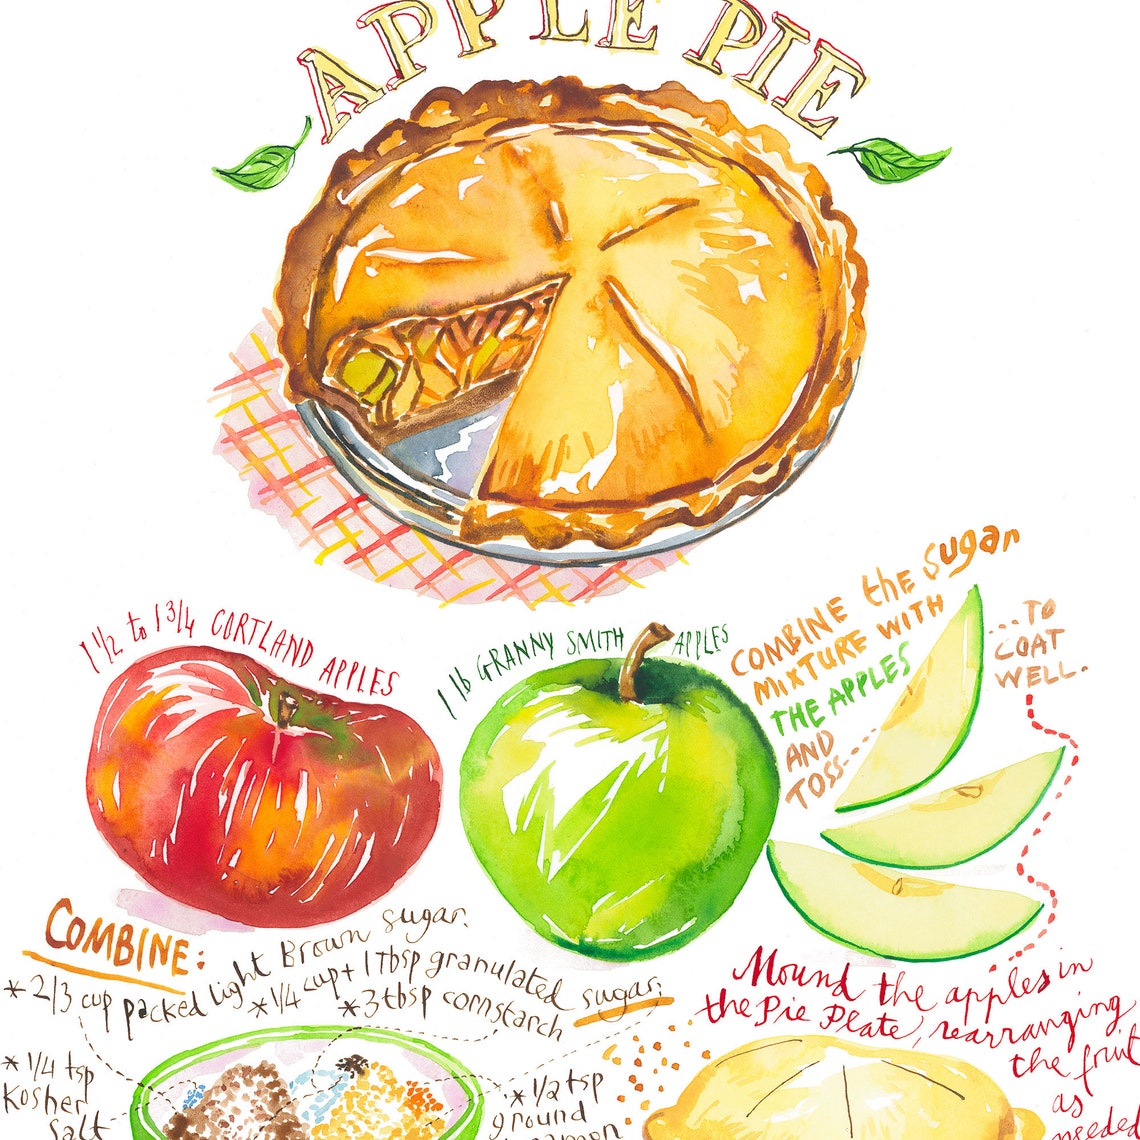 APPLE PIE
1 1/2 to 1 3/4 CORTLAND APPLES
1 lb GRANNY SMITH APPLES
COMBINE the sugar
MIXTURE WITH
THE APPLES
AND
TOSS
...TO
COAT
WELL.
COMBINE:
* 2/3 cup packed light Brown sugar.
* 1/4 cup + 1 Tbsp granulated sugar.
* 3 tbsp cornstarch
* 1/4 tsp
Kosher
Salt
* 1/2 tsp
ground
Mound the apples in
the Pie Plate, rearranging
the fruit
as
needed